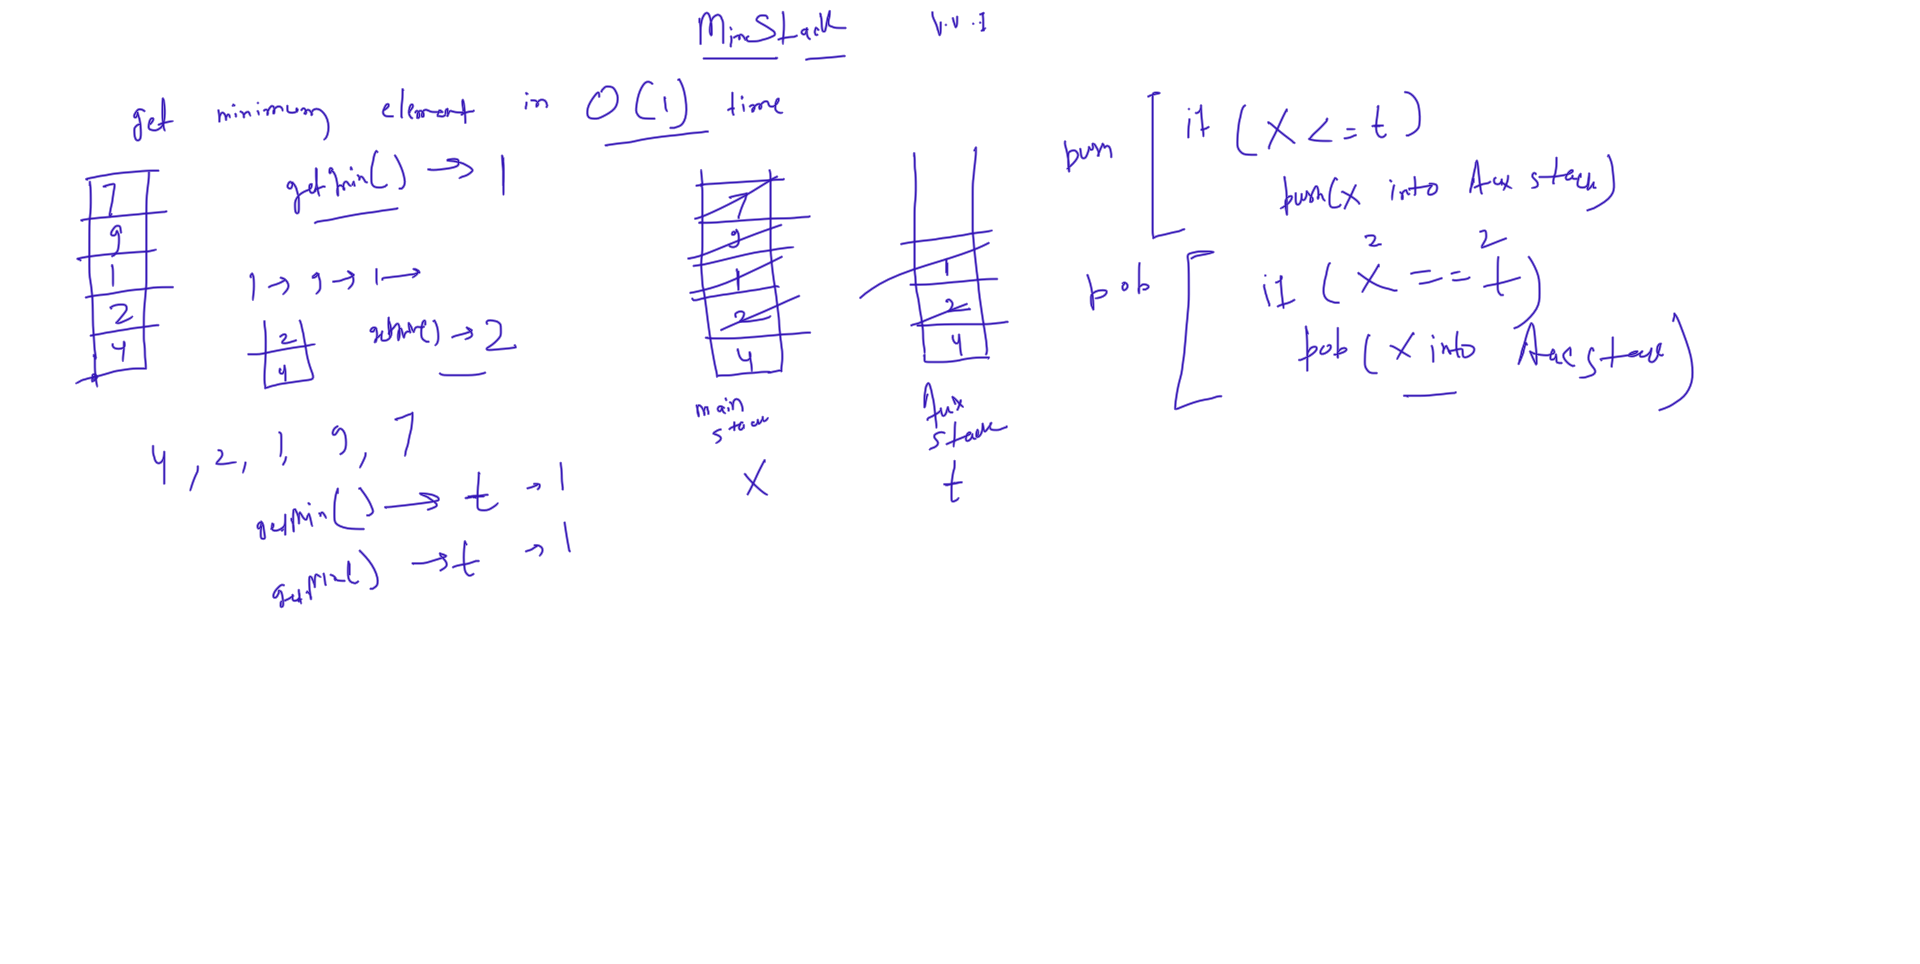 MinStack V.V.I
get minimum element in O(1) time
getMin() → 1
7
9
1
2
4
1 → 9 → 1 →
2
4
getMin() → 2
4, 2, 1, 9, 7
getMin() → t → 1
getMin() → t → 1
7
9
1
2
4
main
stack
X
1
2
4
Aux
stack
t
push
if (X <= t)
push(X into Aux stack)
pop
2 2
if (X == t)
pop(X into Aux stack)